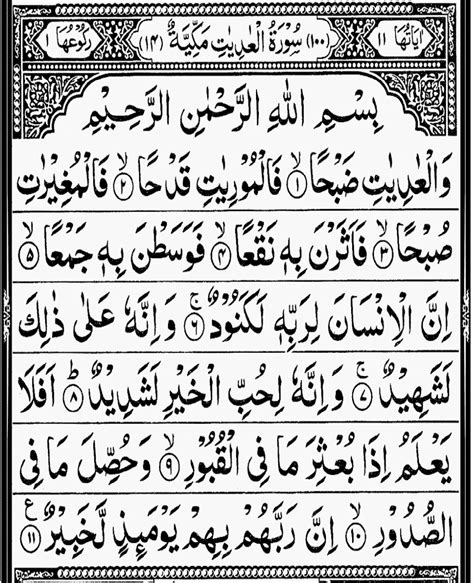 اٰيَاتُهَا ۱۱ (۱۰۰) سُوْرَةُ الْعٰدِيٰتِ مَكِّيَّةٌ (۱۴) رُكُوْعُهَا ۱
بِسْمِ اللهِ الرَّحْمٰنِ الرَّحِيْمِ
وَالْعٰدِيٰتِ ضَبْحًا ۙ‏﴿۱﴾ فَالْمُوْرِيٰتِ قَدْحًا ۙ‏﴿۲﴾ فَالْمُغِيْرٰتِ
صُبْحًا ۙ‏﴿۳﴾ فَاَثَرْنَ بِهٖ نَقْعًا ۙ‏﴿۴﴾ فَوَسَطْنَ بِهٖ جَمْعًا ۙ‏﴿۵﴾
اِنَّ الْاِنْسَانَ لِرَبِّهٖ لَكَنُوْدٌ ۚ‏﴿۶﴾ وَ اِنَّهٗ عَلٰى ذٰلِكَ
لَشَهِيْدٌ ۚ‏﴿۷﴾ وَ اِنَّهٗ لِحُبِّ الْخَيْرِ لَشَدِيْدٌ ؕ‏﴿۸﴾ اَفَلَا
يَعْلَمُ اِذَا بُعْثِرَ مَا فِى الْقُبُوْرِ ۙ‏﴿۹﴾ وَ حُصِّلَ مَا فِى
الصُّدُوْرِ ۙ‏﴿۱۰﴾ اِنَّ رَبَّهُمْ بِهِمْ يَوْمَئِذٍ لَّخَبِيْرٌ ‏﴿۱۱﴾ ع